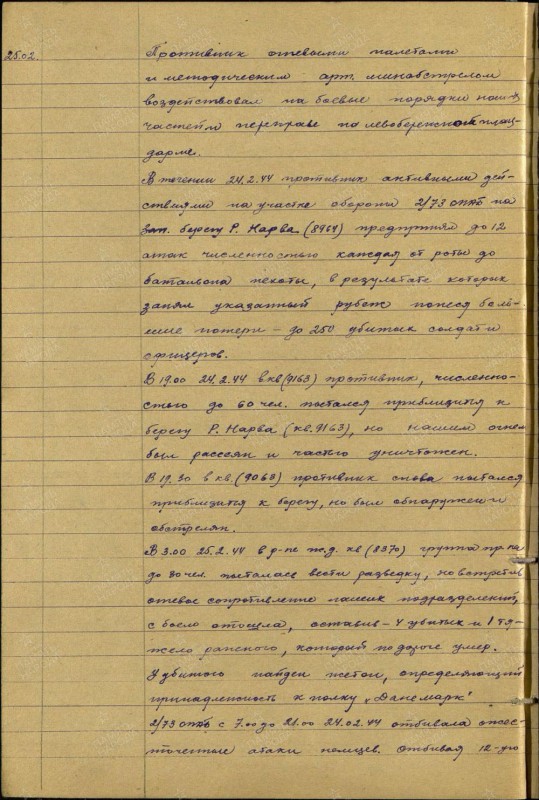 25.02. Противник огневыми налетами
и методическим арт. минобстрелом
воздействовал на боевые порядки наших
частей и переправе на левобережном плац-
дарме.
В течении 24.2.44 противник активными дей-
ствиями на участке обороны 2/73 на
зап. берегу р. Нарва (8964) предпринял до 12
атак численностью каждая от роты до
батальона пехоты, в результате которых
занял указанный рубеж понеся боль-
шие потери – до 250 убитых солдат и
офицеров.
В 19.00 24.2.44 в кв (9163) противник, численно-
стью до 60 чел. пытался приблизится к
берегу р. Нарва (кв. 9163), но нашим огнем
был рассеян и частью уничтожен.
В 19.30 в кв. (9063) противник снова пытался
приблизится к берегу, но был обнаружен и
обстрелян.
В 3.00 25.2.44 в р-не ж.д. кв (8370) группа пр-ка
до 30 чел. пыталась вести разведку, но встретив
огневое сопротивление наших подразделений,
с боем отошла, оставив – 4 убитых и 1 тя-
жело раненого, который по дороге умер.
У убитого найден жетон, определяющий
принадлежность к полку „Данемарк"
2/73 с 7.00 до 21.00 24.02.44 отбивала ожес-
точенные атаки немцев. Отбивая 12-ую